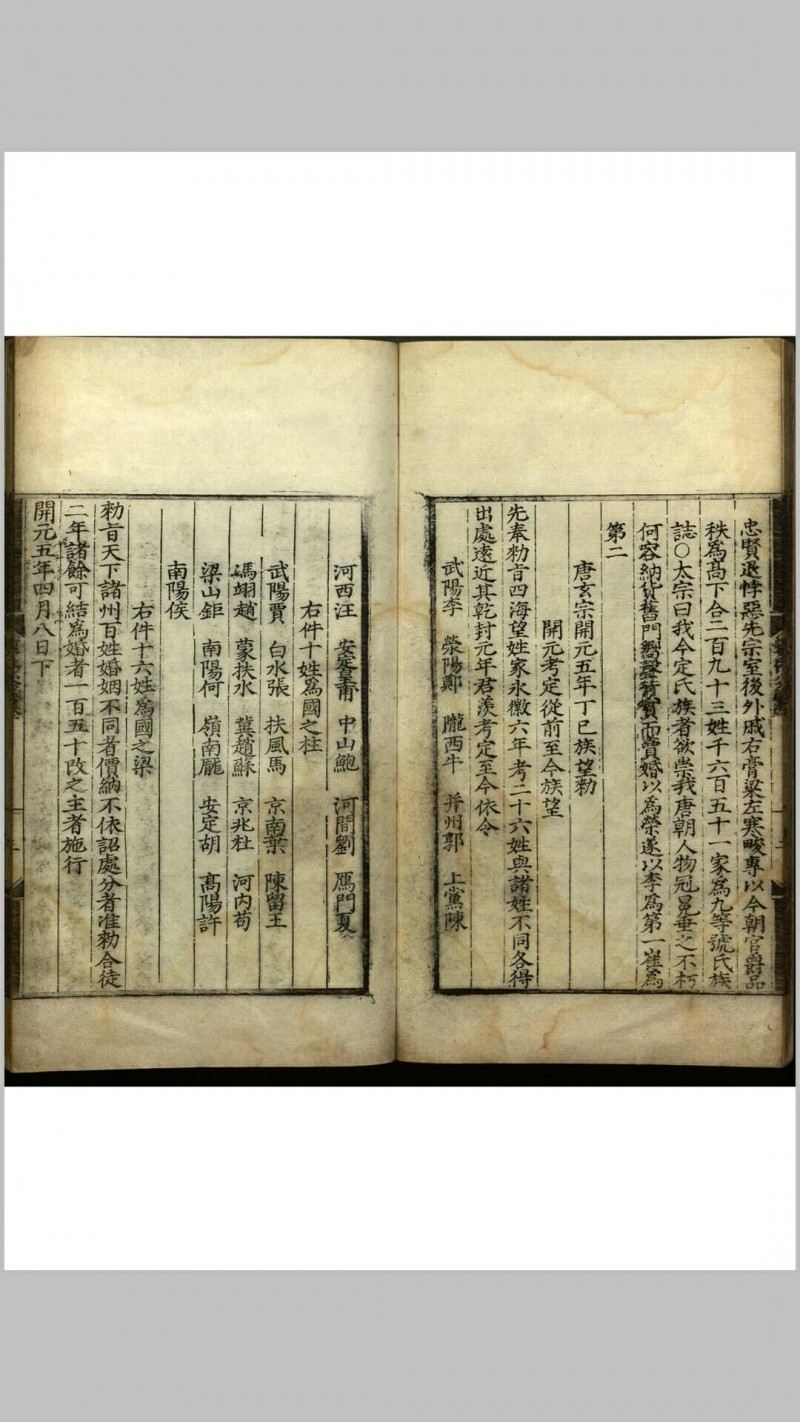 忠賢退悖惡先宗室後外戚右膏粱左寒畯專以今朝官爵品
秩爲髙下合二百九十三姓千六百五十一家爲九等號氏族
誌○太宗曰我今定氏族者欲崇我唐朝人物冠冕垂之不朽
何容納貨舊門賣婚以爲榮遂以李爲第一崔爲
第二
唐玄宗開元五年丁巳族望勑
開元考定從前至今族望
先奉勑旨四海望姓家永徽六年考二十六姓與諸姓不同各得
出處遠近其乾封元年君羨考定至今依令
武陽李 滎陽鄭 隴西牛 并州郭 上黨陳
河西汪 安定皇甫 中山鮑 河間劉 鴈門夏
右件十姓爲國之柱
武陽賈 白水張 扶風馬 京南葉 陳留王
馮翊趙 蒙扶水 冀趙蘇 京兆杜 河内苟
梁山鉅 南陽何 嶺南龎 安定胡 髙陽許
南陽侯
右件十六姓爲國之梁
勑旨天下諸州百姓婚姻不同者價納不依詔處分者准勑合徒
二年諸餘可結爲婚者一百五十改之主者施行
開元五年四月八日下